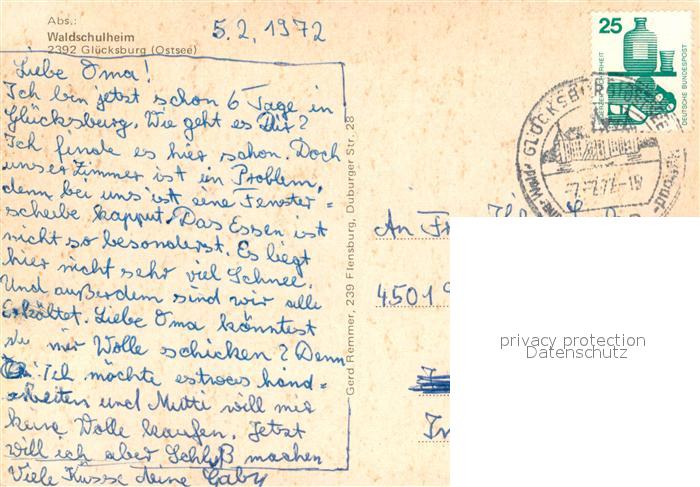 Abs.:
Waldschulheim
2392 Glücksburg (Ostsee)
5.2.1972
Liebe Oma!
Ich bin jetzt schon 6 Tage in
Glücksburg. Wie geht es Dir?
Ich finde es hier schon. Doch
unser Zimmer ist ein Problem,
denn bei uns ist eine Fenster=
scheibe kapput. Das Essen ist
nicht so besonderst. Es liegt
hier nicht sehr viel Schnee.
Und außerdem sind wir alle
Erkältet. Liebe Oma könntest
du mir Wolle schicken? Denn
Ich möchte etwas hand=
arbeiten und Mutti will mir
keine Wolle kaufen. Jetzt
will ich aber Schluß machen
Viele Küsse deine Gaby
Gerd Remmer, 239 Flensburg, Duburger Str. 28
25
DEUTSCHE BUNDESPOST
GLÜCKSBURG
-7.-2.72.-19
An Fr
4501
privacy protection
Datenschutz